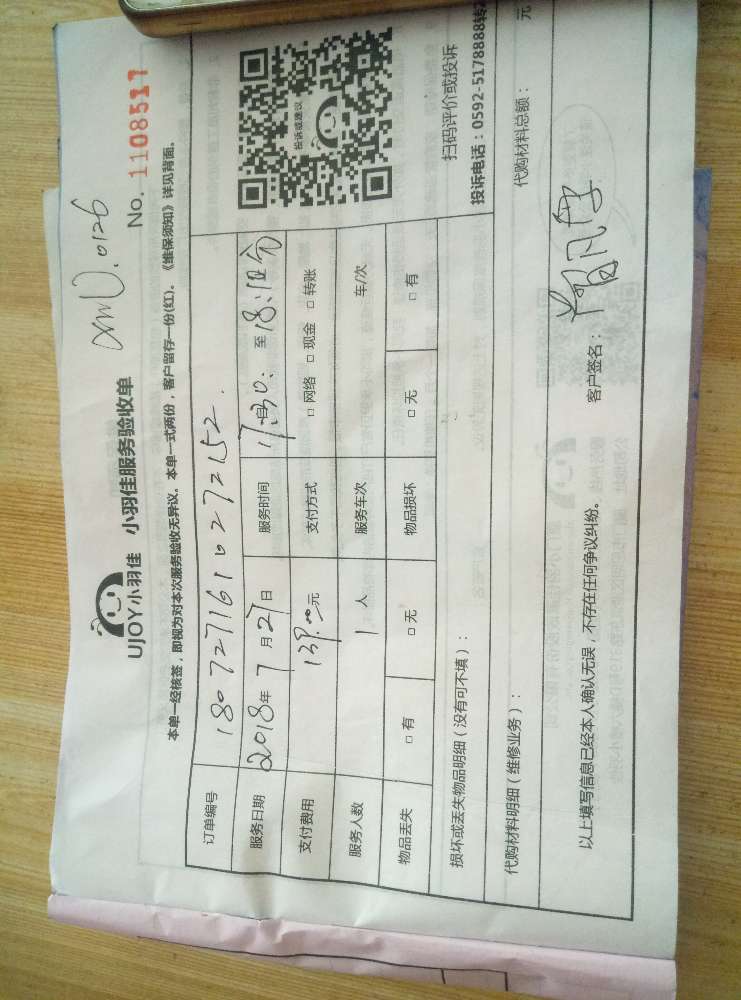 UJOY小羽佳 小羽佳服务验收单
xmU.0126
No. 1108517
本单一经核签，即视为对本次服务验收无异议。本单一式两份，客户留存一份(红)。《维保须知》详见背面。
订单编号 1807271610272152.
服务日期 2018年 7 月 27 日 服务时间 17:30: 至 18: 分
支付费用 139.00元 支付方式 □ 网络 □ 现金 □ 转账
服务人数 1 人 服务车次 车/次
物品丢失 □ 有 □ 无 物品损坏 □ 无 □ 有
投诉或建议
扫码评价或投诉
投诉电话：0592-5178888转
损坏或丢失物品明细（没有可不填）：
代购材料明细（维修业务）： 代购材料总额： 元
以上填写信息已经本人确认无误，不存在任何争议纠纷。 客户签名：